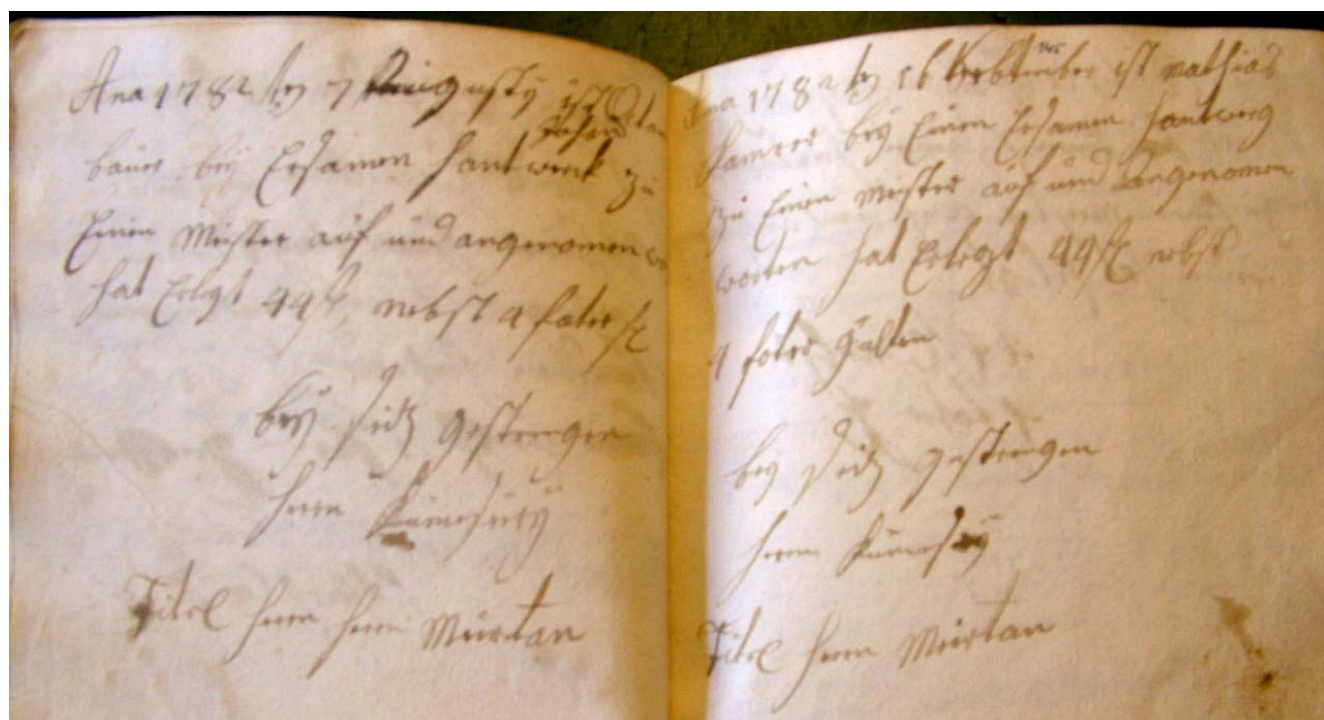 Ana 1782 den 7 Augusty ist
Johan
bauer bey Ersamen Hantwerck zu
Einen Meister auf und angenomen
hat Erlegt 44 fl nebst 4 foter fl
bey Seits gestrengen
Herrn
Titel Herrn Herrn Murtan
145
Ana 1782 den 16 September ist Mathias
bey Einen Ersamen Hantwerg
zu Einen Meister auf und angenomen
worten hat Erlegt 44 fl nebst
4 foter gulten
bey Seits gestrengen
Herrn
Titel Herrn Murtan